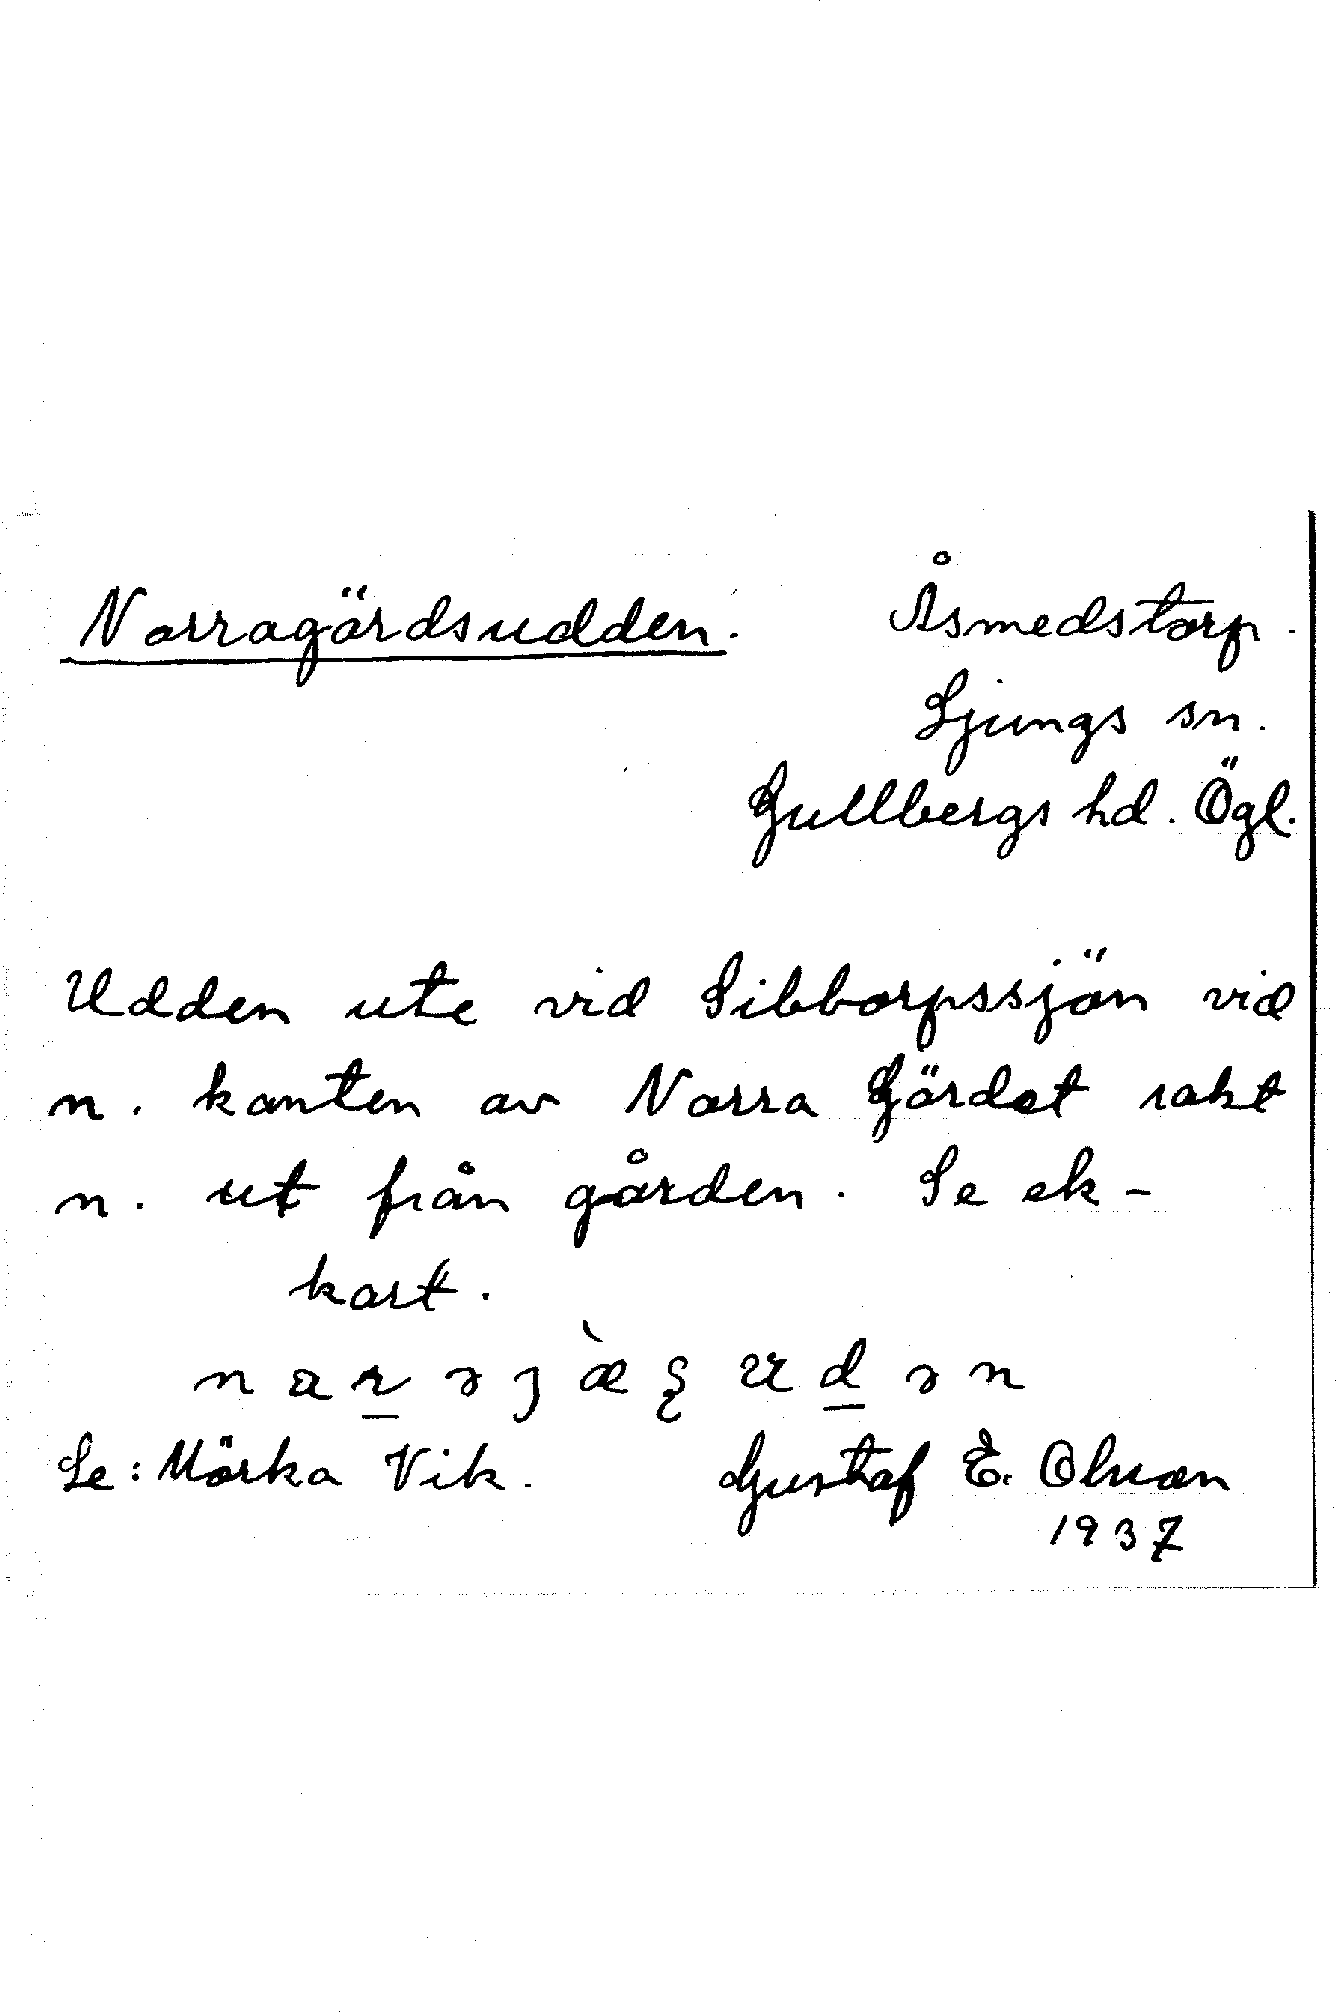 Norragärdsudden.
Åsmedstorp.
Ljungs sn.
Gullbergs hd. Ögl.
Udden ute vid Sibborpssjön vid
n. kanten av Norra Gärdet rakt
n. ut från gården. Se ek-
kart.
Se: Mörka Vik. Gustaf E. Olsson
1937